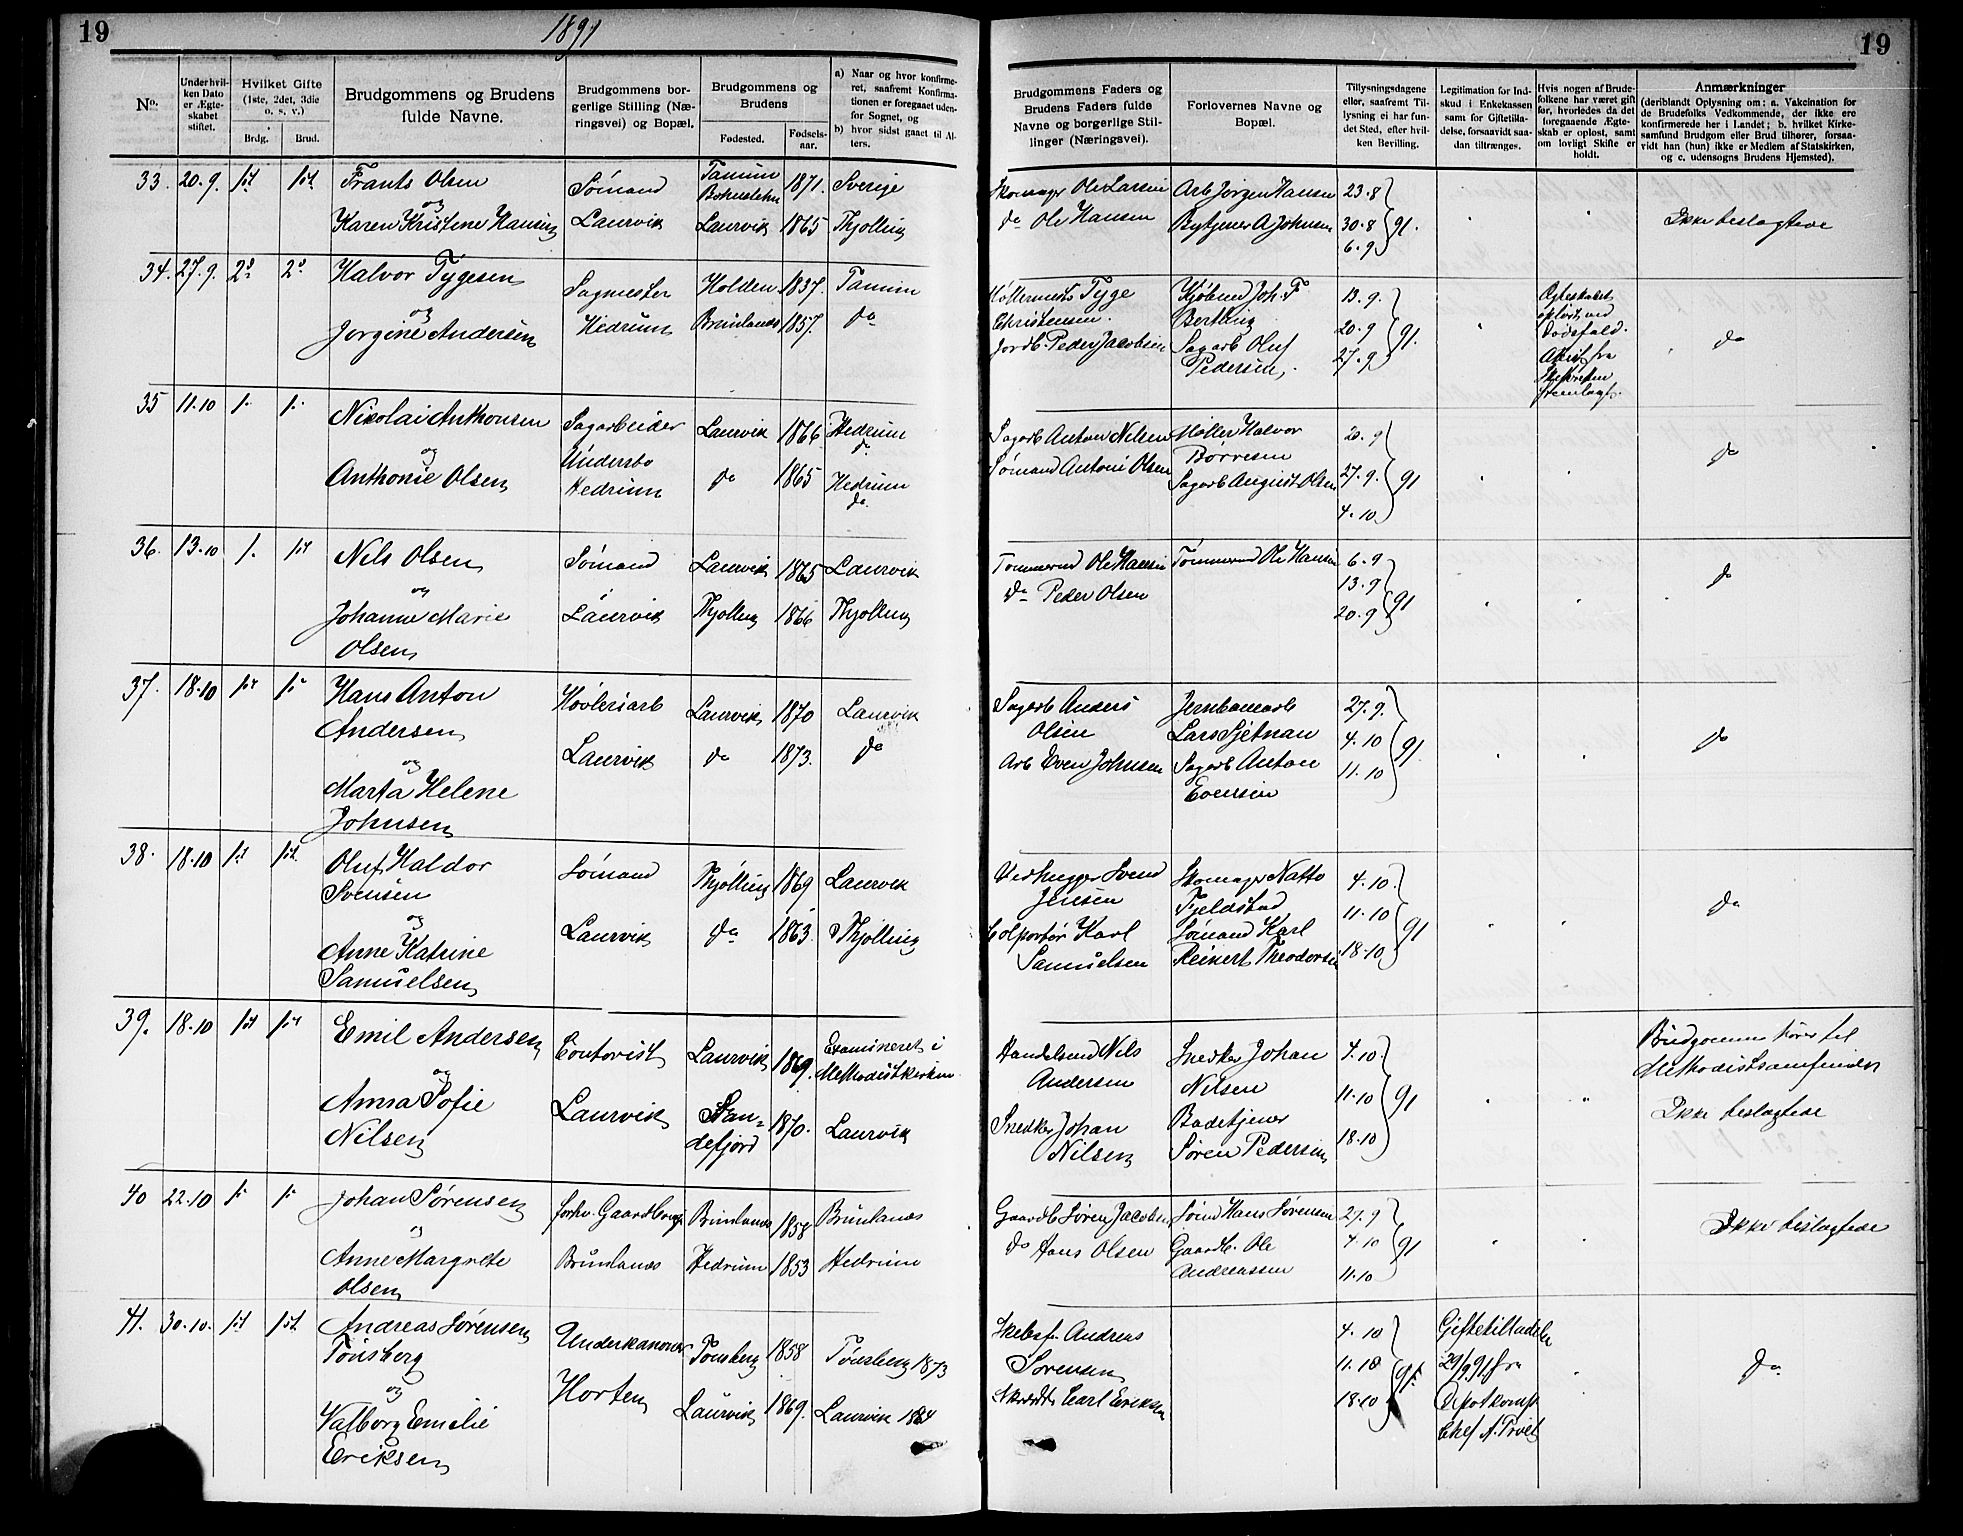 19
1891
19
No.
Under hvilken Dato er Ægteskabet stiftet.
Hvilket Gifte
(1ste, 2det, 3die o. s. v.)
Brdg.
Brud.
Brudgommens og Brudens fulde Navne.
Brudgommens borgerlige Stilling (Næringsvei) og Bopæl.
Brudgommens og Brudens
Fødested.
Fødselsaar.
a) Naar og hvor konfirmeret, saafremt Konfirmationen er foregaaet udenfor Sognet, og
b) hvor sidst gaaet til Alters.
Brudgommens Faders og Brudens Faders fulde Navne og borgerlige Stillinger (Næringsvei).
Forlovernes Navne og Bopæl.
Tillysningsdagene eller, saafremt Tillysning ei har fundet Sted, efter hvilken Bevilling.
Legitimation for Indskud i Enkekassen samt for Giftetilladelse, forsaavidt saadan tiltrænges.
Hvis nogen af Brudefolkene har været gift før, hvorledes da det foregaaende Ægteskab er opløst, samt om lovligt Skifte er holdt.
Anmærkninger
(deriblandt Oplysning om: a. Vakcination for de Brudefolks Vedkommende, der ikke ere konfirmerede her i Landet; b. hvilket Kirkesamfund Brudgom eller Brud tilhører, forsaavidt han (hun) ikke er Medlem af Statskirken, og c. udensogns Brudens Hjemsted).
33. 20.9. 1st 1st Frants Olsen Sømand Tanum Bohuslehn 1871. Sverige Skomager Ole Larsen Arb Jørgen Hansen 23.8
og
Karen Kristine Hansen Laurvik Laurvik 1865 Thjølling do Ole Hansen Bytjener A Johnsen 30.8 91. Ikke beslægtede
6.9
34. 27.9. 2d 2d Halvor Tygesen Sagmester Holden 1837. Tanum Møllermester Tyge Christensen. Kjøbmd Joh. F Bertling 13.9.
og
Jørgine Andersen Hedrum Brunlanæs 1857. do Jordb. Peder Jacobsen Sagarb Oluf Pedersen. 20.9 91.
27.9
Ægteskabet opløst ved Dødsfald. Attest fra Skifteretten fremlagt.
do
35 11.10 1. 1. Nikolai Anthonsen Sagarbeider Laurvik 1866 Hedrum Sagarb Anton Nilsen Møller Halvor Børresen 20.9
og
do
Anthonie Olsen Undersbo Hedrum do 1865 Hedrum Sømand Antoni Olsen Sagarb August Olsen 27.9. 91 do
do
4.10
36. 13.10 1. 1st Nils Olsen Sømand Laurvik 1865 Laurvik Tømmermd Ole Hansen Tømmermd Ole Hansen 6.9
og
Johanne Marie Olsen Laurvik Thjølling 1866 Thjølling do Peder Olsen 13.9 91 do
20.9
37. 18.10 1st 1st Hans Anton Andersen Høvleriarb Laurvik 1870 Laurvik Sagarb Anders Olsen Jernbanearb Lars Sjetnan 27.9.
og
Marta Helene Johnsen Laurvik do 1873. do Arb Even Johnsen Sagarb Anton Evensen 4.10 91. do
11.10
38. 18.10 1st 1st Oluf Haldor Svensen Sømand Thjølling 1869 Laurvik Vedhugger Svend Jensen Skomager Natto Fjeldstad 4.10.
og
Anne Katrine Samuelsen Laurvik do 1863. Thjølling Colportør Karl Samuelsen Sømand Karl Reinert Theodorsen 11.10 91 do
18.10
39. 18.10 1st 1st Emil Andersen Contorist Laurvik 1869. Examineret i Methodistkirken Handelsmd Nils Andersen Snedker Johan Nilsen 4.10. Brudgommen hører til Methodistsamfundet
og
Anna Sofie Nilsen Laurvik Sandefjord 1870. Laurvik Snedker Johan Nilsen Badetjener Søren Pedersen 11.10 91 Ikke beslægtede
18.10
40 22.10 1st 1st Johan Sørensen forhv. Gaardbruger Brunlanæs 1858 Brunlanæs Gaardb Søren Jacobsen Sømd Hans Sørensen 27.9
og
Anne Margrete Olsen Brunlanæs Hedrum 1853 Hedrum do Hans Olsen Gaardb. Ole Andreassen 4.10 91 Ikke beslægtede
11.10
41. 30.10. 1st 1st Andreas Sørensen Tønsberg Underkanoner Tønsberg 1858 Tønsberg 1873 Skibsf. Andreas Sørensen 4.10
og
Valborg Emelie Eriksen Horten Laurvik 1869. Laurvik 1884 Carl Eriksen 11.10 91. Giftetilladelse 29/9 91 fra Depotkomp Chef do
18.10